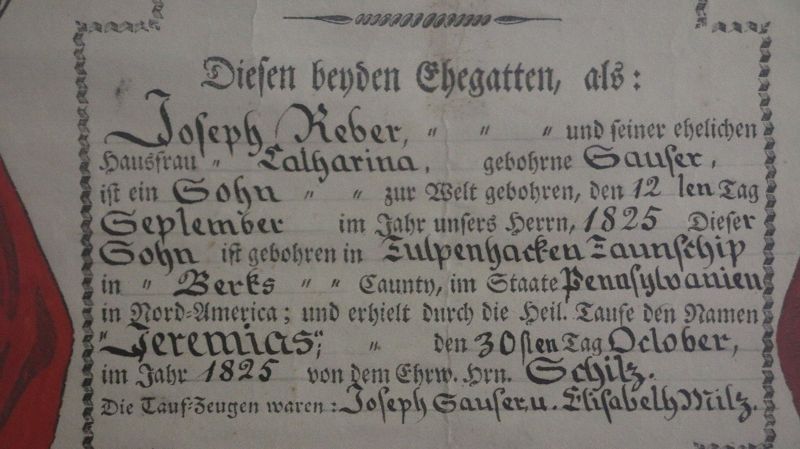 Diesen beyden Ehegatten, als:
Joseph Reber, " " " und seiner ehelichen
Hausfrau " Catharina, gebohrne Sauser,
ist ein Sohn " " zur Welt gebohren, den 12 ten Tag
September im Jahr unsers Herrn, 1825 Dieser
Sohn ist gebohren in Tulpenhacken Taunschip
in " Berks " " Caunty, im Staate Pennsylvanien
in Nord-America; und erhielt durch die Heil. Taufe den Namen
"Jeremias", " den 30sten Tag October,
im Jahr 1825 von dem Ehrw. Hrn. Schitz.
Die Tauf-Zeugen waren: Joseph Sauser, u. Elisabeth Milz.